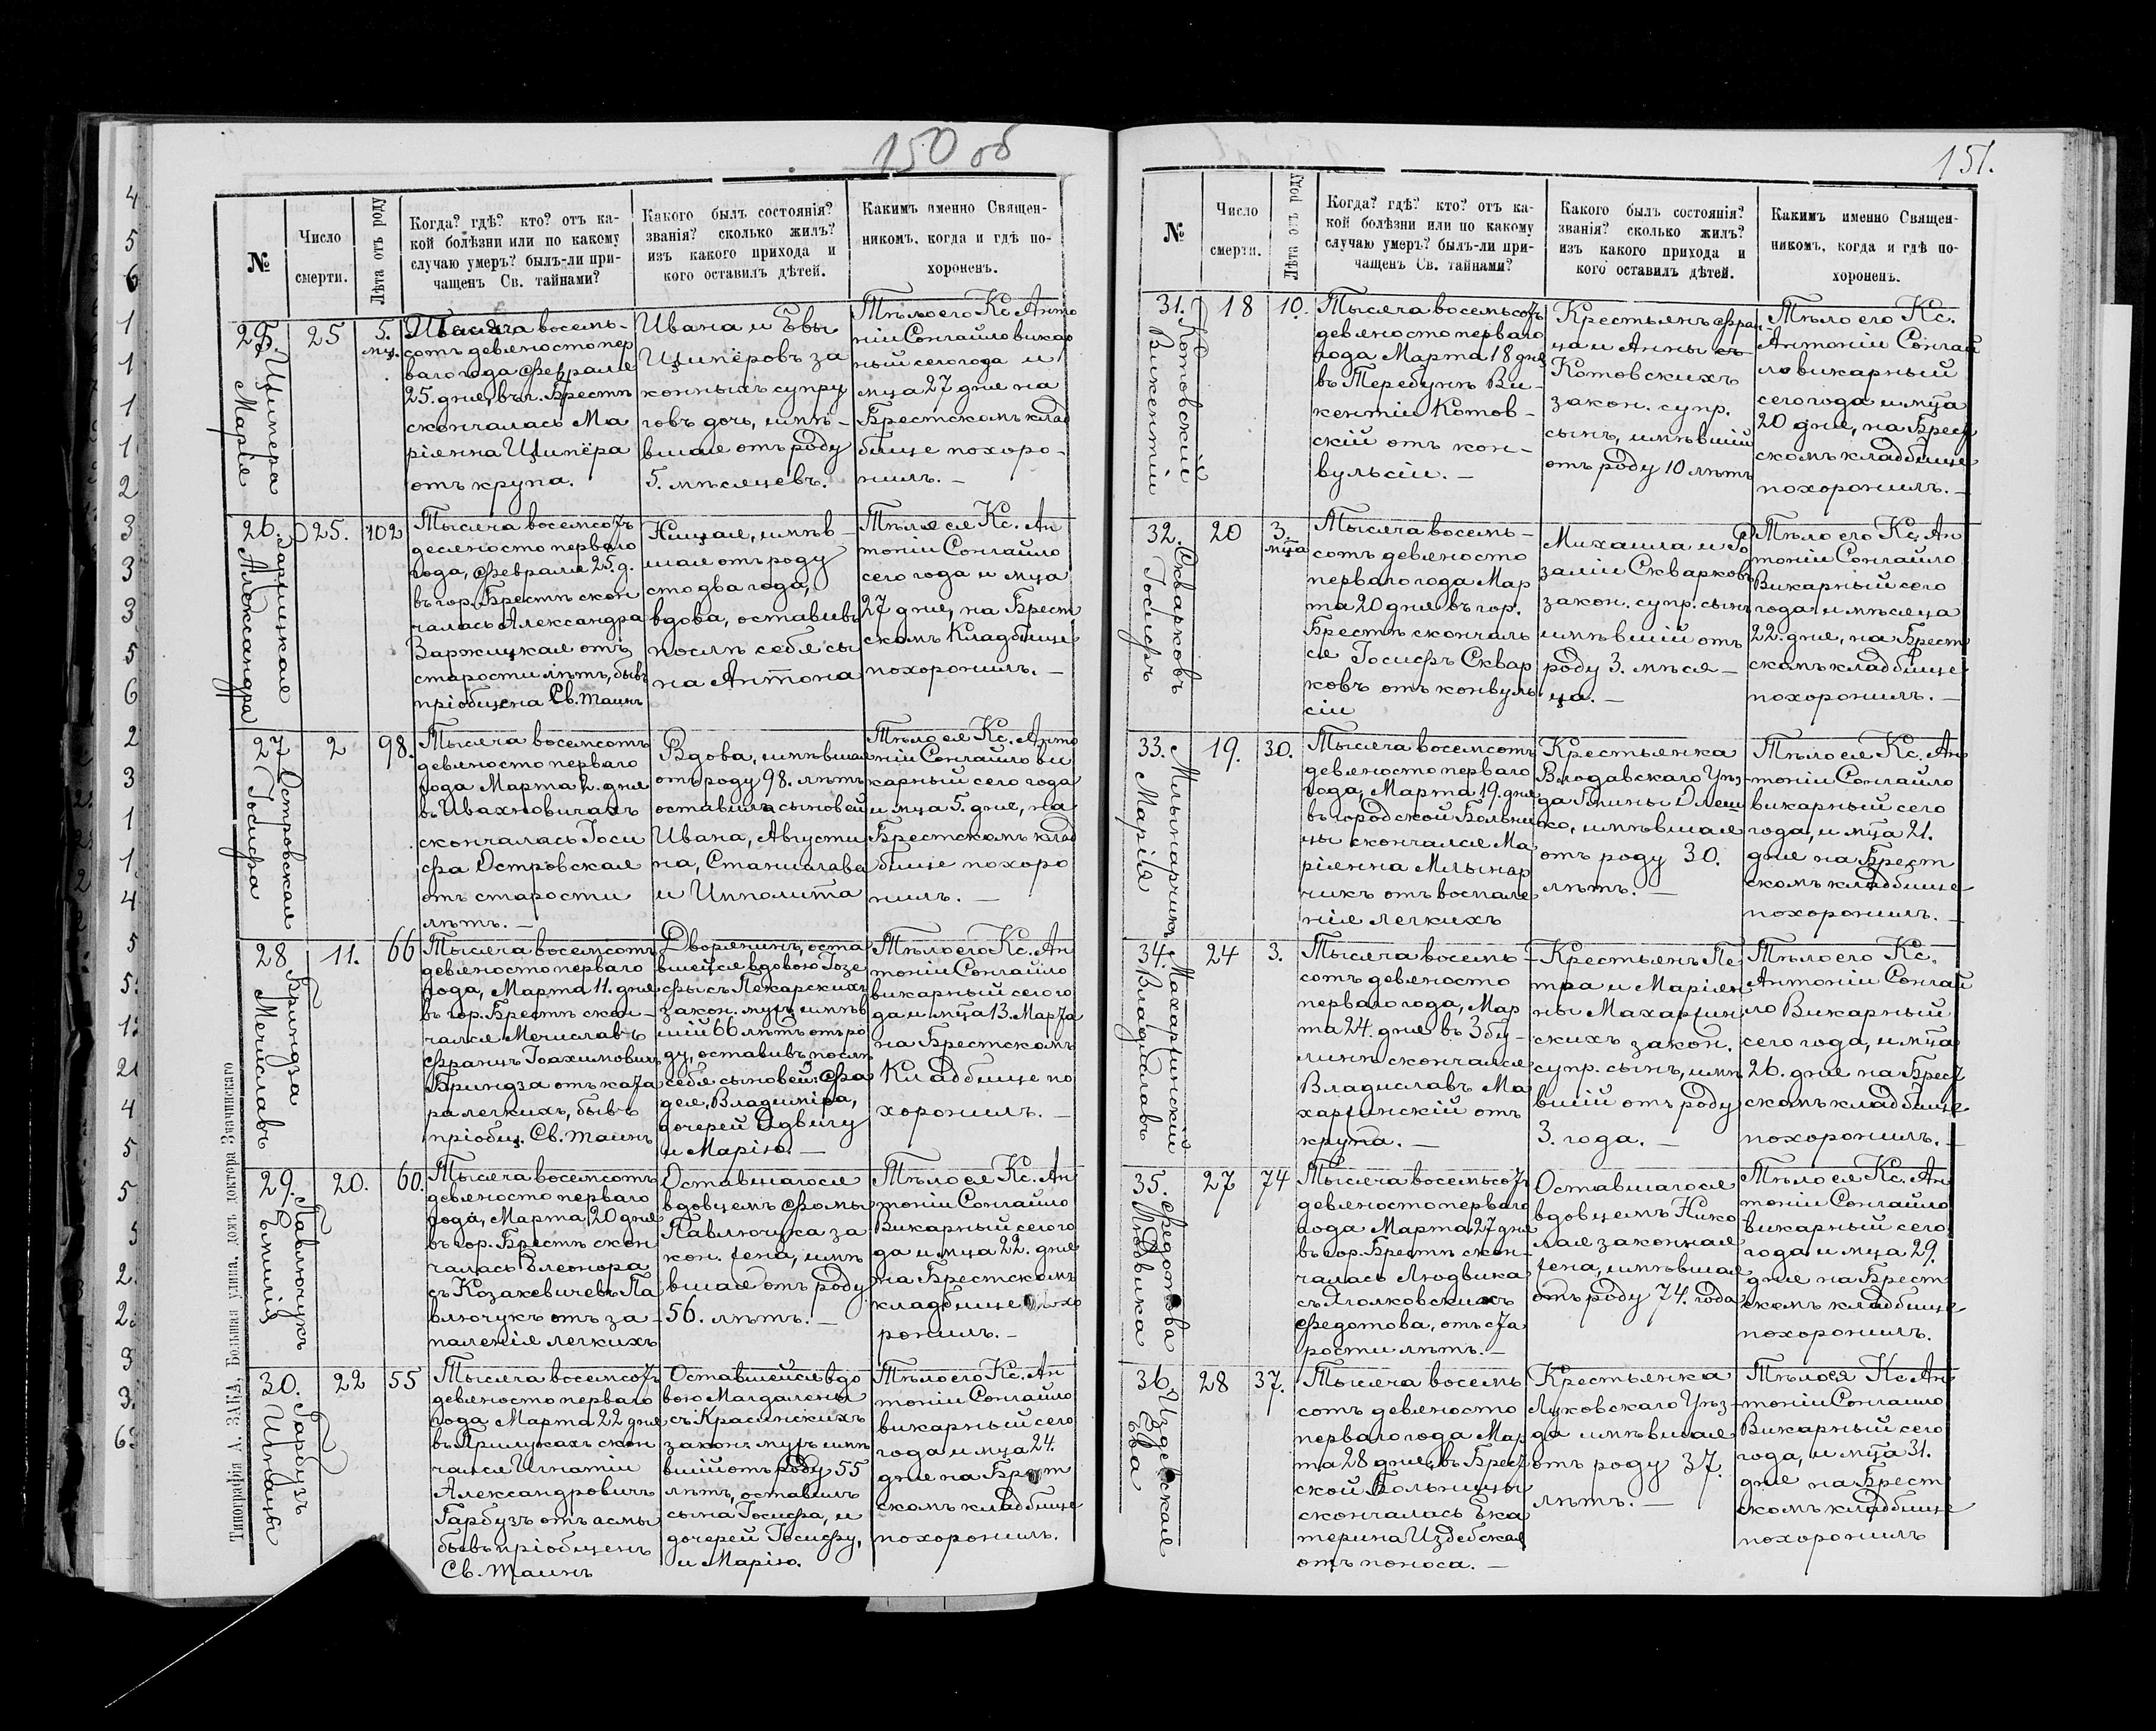 150 об
№
Число
смерти.
Лѣта отъ роду
Когда? гдѣ? кто? отъ ка-
кой болѣзни или по какому
случаю умеръ? былъ-ли при-
чащенъ Св. тайнами?
Какого былъ состоянія?
званія? сколько жилъ?
изъ какого прихода и
кого оставилъ дѣтей.
Какимъ именно Священ-
никомъ, когда и гдѣ по-
хороненъ.
25.
Ципера
Марія
25
5.
мц.
Тысяча восемь-
сотъ девяносто пер
ваго года Февраля
25. дня, въ г. Брестѣ
скончалась Ма
ріянна Ципёра
отъ крупа.
Ивана и Евы
Ципёровъ за
конныхъ супру
говъ дочь, имѣ-
вшая отъ роду
5. мѣсяцевъ.
Тѣло его Кс Анто
ній Сонгайло викар
ный сего года и
мца 27 дня на
Брестскомъ клад
бище похоро-
нилъ. —
26.
Заржицкая
Александра
25.
102
Тысяча восемсотъ
девяносто перваго
года, Февраля 25. д.
въ гор. Брестѣ скон
чалась Александра
Заржицкая отъ
старости лѣтъ, бывъ
пріобщена Св. Таинъ
Нищая, имѣв-
шая отъ роду
сто два года,
вдова, оставивъ
послѣ себя сы
на Антона
Тѣло ея Кс. Ан
тоній Сонгайло
сего года и мца
27 дня, на Брест
скомъ Кладбище
похоронилъ. —
27
Островская
Іосифа
2
98.
Тысяча восемсотъ
девяносто перваго
года Марта 2. дня
въ Ивахновичахъ
скончалась Іоси
фа Островская
отъ старости
лѣтъ. —
Вдова, имѣвшая
отъ роду 98. лѣтъ
оставила сыновей
Ивана, Августи
на, Станислава
и Ипполита
Тѣло ея Кс. Анто
ній Сонгайло ви
карный сего года
и мца 5. дня, на
Брестскомъ клад
бище похоро
нилъ. —
28
Бриндза
Мечиславъ
11.
66
Тысяча восемсотъ
девяносто перваго
года, Марта 11. дня
въ гор. Брестѣ скон-
чался Мечиславъ
Францъ Іоахимовичъ
Бриндза отъ ката
ра легкихъ, бывъ
пріобщ. Св. Таинъ
Дворянинъ, оста
вшейся вдовою Іозе
фы съ Пекарскихъ
закон. мужъ имѣв
шій 66 лѣтъ отъ ро
ду, оставивъ послѣ
себя сыновей: Фа
дея, Владиміра,
дочерей Ядвигу
и Марію. —
Тѣло его Кс. Ан
тоній Сонгайло
викарный сего го
да и мца 13. Марта
на Брестскомъ
Кладбище по
хоронилъ. —
29.
Павлючукъ
Емилія
20.
60.
Тысяча восемсотъ
девяносто перваго
года, Марта 20 дня
въ гор. Брестѣ скон
чалась Елеонора
съ Козакевичевъ Па
влючукъ отъ за-
паленія легкихъ
Оставшагося
вдовцемъ Фомы
Павлючука за
кон. жена, имѣ
вшая отъ роду
56. лѣтъ. —
Тѣло ея Кс. Ан
тоній Сонгайло
Викарный сего го
да и мца 22. дня
на Брестскомъ
кладбище похо
ронилъ. —
30.
Гарбузъ
Игнацы
22
55
Тысяча восемсотъ
девяносто перваго
года Марта 22 дня
въ Прилукахъ скон
чался Игнатій
Александровичъ
Гарбузъ отъ асмы
бывъ пріобщенъ
Св. Таинъ
Оставшейся вдо
вою Магдалены
съ Красинскихъ
закон. мужъ имѣ
вшій отъ роду 55
лѣтъ, оставилъ
сына Іосифа, и
дочерей Іосифу,
и Марію.
Тѣло его Кс. Ан
тоній Сонгайло
викарный сего
года и мца 24.
дня на Брест
скомъ кладбище
похоронилъ.
Типографія А. ЗАКА, Большая улица, домъ доктора Значинскаго
151.
№
Число
смерти.
Лѣта отъ роду
Когда? гдѣ? кто? отъ ка-
кой болѣзни или по какому
случаю умеръ? былъ-ли при-
чащенъ Св. тайнами?
Какого былъ состоянія?
званія? сколько жилъ?
изъ какого прихода и
кого оставилъ дѣтей.
Какимъ именно Священ-
никомъ, когда и гдѣ по-
хороненъ.
31.
Котовскій
Викентій
18
10.
Тысяча восемьсотъ
девяносто перваго
года Марта 18 дня
въ Теребунѣ Ви-
кентій Котов-
скій отъ кон-
вульсіи. —
Крестьянъ Фран-
ца и Анны съ
Котовскихъ
закон. супр.
сынъ, имѣвшій
отъ роду 10 лѣтъ
Тѣло его Кс.
Антоній Сонгай
ло викарный
сего года и мца
20 дня, на Брест
скомъ кладбище
похоронилъ. —
32.
Скварковъ
Іосифъ
20
3.
мца
Тысяча восемь-
сотъ девяносто
перваго года Мар
та 20 дня въ гор.
Брестѣ скончаль
ся Іосифъ Сквар
ковъ отъ конвуль
сіи
Михаила и Ро
заліи Скварковъ
закон. супр. сынъ
имѣвшій отъ
роду 3. мѣся-
ца. —
Тѣло его Кс. Ан
тоній Сонгайло
Викарный сего
года и мѣсяца
22. дня, на Брест
скомъ кладбище
похоронилъ. —
33.
Млынарчикъ
Марія
19.
30.
Тысяча восемсотъ
девяносто перваго
года, Марта 19. дня
въ городской Больни
цы скончался Ма
ріянна Млынар
чикъ отъ воспале
нія легкихъ
Крестьянка
Влодавскаго Уѣз-
да Гмины Олеш
ко, имѣвшая
отъ роду 30.
лѣтъ. —
Тѣло ея Кс. Ан
тоній Сонгайло
викарный сего
года, и мца 21.
дня на Брест
скомъ кладбище
похоронилъ. —
34.
Махаржинскій
Владиславъ
24
3.
Тысяча восемь-
сотъ девяносто
перваго года, Мар
та 24. дня въ Збу-
линѣ скончался
Владиславъ Ма
харжинскій отъ
крупа. —
Крестьянъ Пе
тра и Маріян
ны Махаржин
скихъ закон.
супр. сынъ, имѣ
вшій отъ роду
3. года. —
Тѣло его Кс.
Антоній Сонгай
ло Викарный
сего года, и мца
26. дня на Брест
скомъ кладбище
похоронилъ. —
35.
Федотова
Людвика
27
74
Тысяча восемьсотъ
девяносто перваго
года Марта 27 дня
въ гор. Брестѣ скон-
чалась Людвика
съ Яголковскихъ
Федотова, отъ ста
рости лѣтъ. —
Оставшагося
вдовцемъ Нико
лая законная
жена, имѣвшая
отъ роду 74. года
Тѣло ея Кс. Ан
тоній Сонгайло
викарный сего
года и мца 29.
дня на Брест
скомъ кладбище
похоронилъ.
36.
Издебская
Ева
28
37.
Тысяча восемь
сотъ девяносто
перваго года Мар
та 28 дня, въ Брест
ской Больницы
скончалась Ека
терина Издебская
отъ поноса. —
Крестьянка
Луковскаго Уѣз-
да имѣвшая
отъ роду 37.
лѣтъ. —
Тѣло ея Кс Ан
тоній Сонгайло
Викарный сего
года, и мца 31.
дня на Брест
скомъ кладбище
похоронилъ